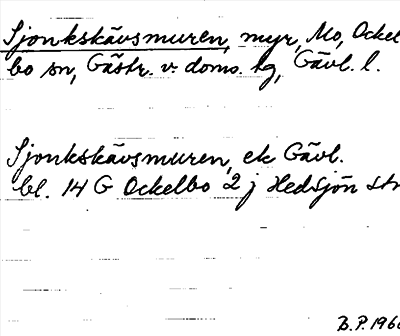 Sjonkskävsmuren, myr, Mo, Ockel
bo sn, Gästr. v. doms. hg, Gävl. l.
Sjonkskävsmuren, ek Gävl.
bl. 14 G Ockelbo 2 j Hedsjön str
B.P. 196